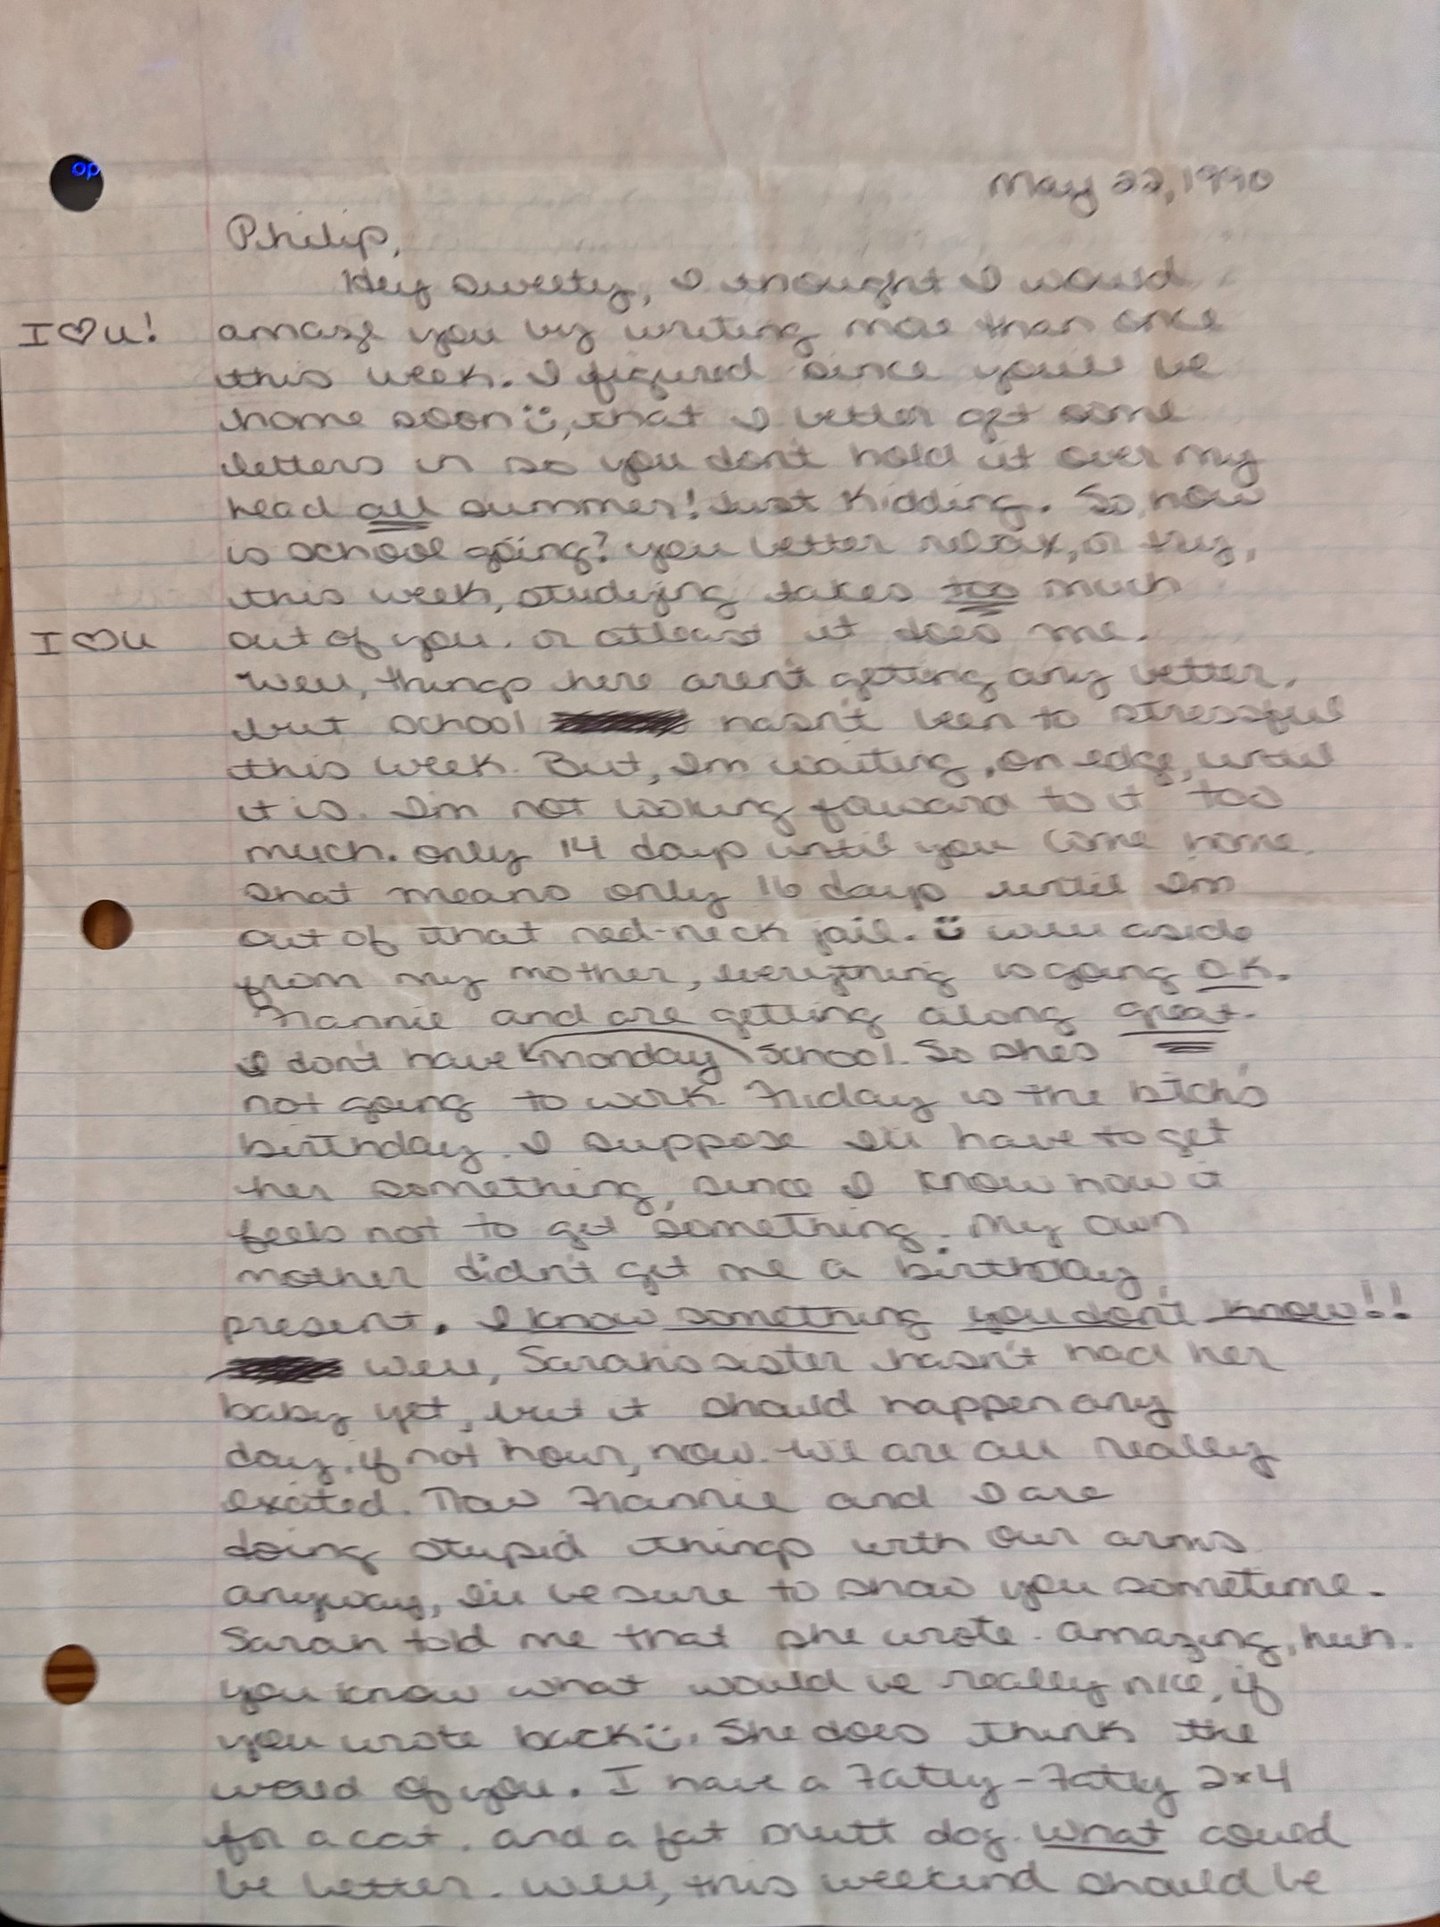 May 22, 1990
Philip,
Hey sweety, I thought I would
I ♡ u! amaze you by writing more than once
this week. I figured since you'll be
home soon :), that I better get some
letters in so you don't hold it over my
head all summer! Just Kidding. So, how
is school going? you better relax, or try,
this week, studying takes too much
I ♡ u out of you. or atleast it does me.
Well, things here aren't getting any better,
but school hasn't been to stressful
this week. But, I'm waiting, on edge, until
it is. I'm not looking foward to it too
much. only 14 days until you come home.
that means only 16 days until I'm
out of that red-neck jail. :) well aside
from my mother, everything is going O.K.
Frannie and are getting along great.
I don't have Monday School. So she's
not going to work. Friday is the bitch's
birthday. I suppose I'll have to get
her something, since I know how it
feels not to get something. My own
mother didn't get me a birthday
present. I know something you don't know!!
well, Sarah's sister hasn't had her
baby yet, but it should happen any
day, if not hour, now. We are all really
excited. Now Frannie and I are
doing stupid things with our arms
anyway, I'll be sure to show you sometime.
Sarah told me that she wrote. amazing, huh.
you know what would be really nice, if
you wrote back :). She does think the
world of you. I have a Fatty-Fatty 2x4
for a cat. and a fat mutt dog. what could
be better. Well, this weekend should be